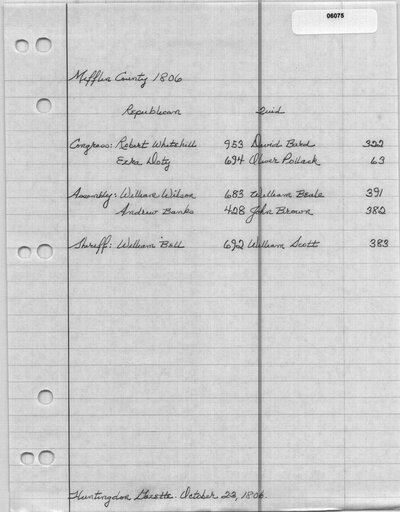 06075
Mifflin County 1806
Republican Quid
Congress: Robert Whitehill 953 David Bard 322
Ezra Doty 694 Oliver Pollock 63
Assembly: William Wilson 683 William Beale 391
Andrew Banks 428 John Brown 382
Sheriff: William Bell 692 William Scott 383
Huntingdon Gazette. October 23, 1806.